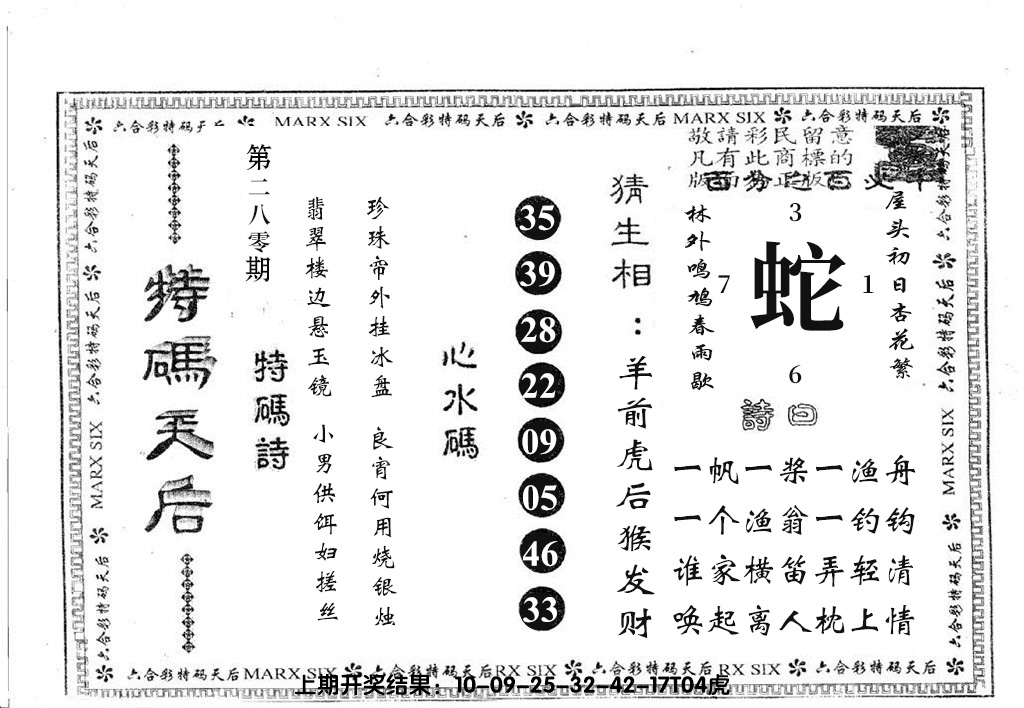 六合彩特码天后 MARX SIX 六合彩特码天后 六合彩特码天后 MARX SIX 六合彩特码天后
敬請彩民留意
凡有此商標的
屋头初日杏花繁
林外鸣鸠春雨歇
3
7 蛇 1
6
詩曰
一帆一桨一渔舟
一个渔翁一钓钩
谁家横笛弄轻清
唤起离人枕上情
猜生相：羊前虎后猴发财
35
39
28
22
09
05
46
33
心水碼
珍珠帘外挂冰盘 良宵何用烧银烛
翡翠楼边悬玉镜 小男供饵妇搓丝
第二八零期
特碼詩
特碼天后
六合彩特码天后 MARX SIX 六合彩特码天后
六合彩特码天后 六合彩特码天后 MARX SIX 六合彩特码天后
六合彩特码天后 MARX SIX 六合彩特码天后 RX SIX 六合彩特码天后 RX SIX 六合彩特码天后
上期开奖结果：10-09-25-32-42-17T04虎